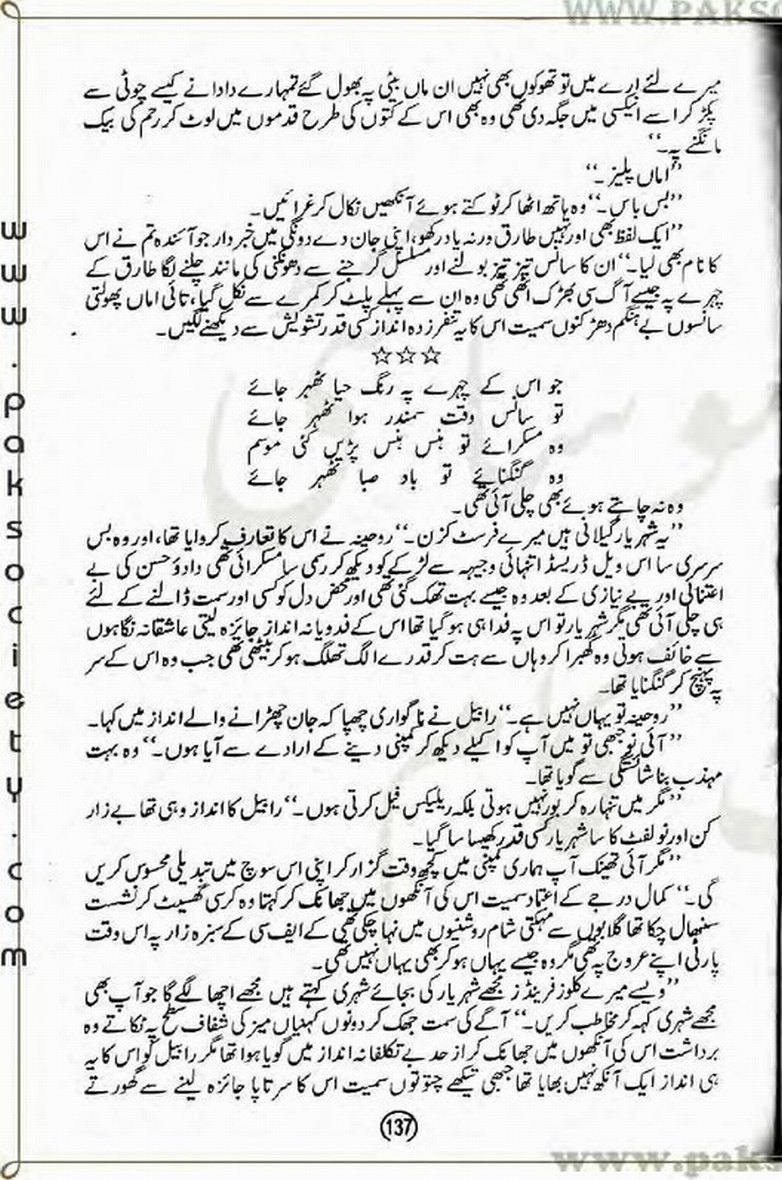 WWW.PAKSO
میرے لئے ارے میں تو تھوکوں بھی نہیں ان ماں بیٹی پہ بھول گئے تمہارے دادا نے کیسے چوٹی سے
پکڑ کر اسے انیکسی میں جگہ دی تھی وہ بھی اس کے کتوں کی طرح قدموں میں لوٹ کر رحم کی بیک
مانگنے پہ۔‘‘
’’اماں پلیز۔‘‘
’’بس باس۔‘‘ وہ ہاتھ اٹھا کر ٹوکتے ہوئے آنکھیں نکال کر غرائیں۔
’’ایک لفظ بھی اور نہیں طارق ورنہ یاد رکھو، اپنی جان دے دونگی میں خبردار جو آئندہ تم نے اس
کا نام بھی لیا۔‘‘ ان کا سانس تیز تیز بولنے اور مسلسل گرجنے سے دھونکنی کی مانند چلنے لگا طارق کے
چہرے پہ جیسے آگ سی بھڑک اٹھی تھی وہ ان سے پہلے پلٹ کر کمرے سے نکل گیا، تائی اماں پھولتی
سانسوں بے ہنگم دھڑکنوں سمیت اس کا یہ تنفر زدہ انداز کسی قدر تشویش سے دیکھنے لگیں۔
☆☆☆
جو اس کے چہرے پہ رنگ حیا ٹھہر جائے
تو سانس وقت سمندر ہوا ٹھہر جائے
وہ مسکرائے تو ہنس ہنس پڑیں کئی موسم
وہ گنگنائے تو باد صبا ٹھہر جائے
وہ نہ چاہتے ہوئے بھی چلی آئی تھی۔
’’یہ شہریار گیلانی ہیں میرے فرسٹ کزن۔‘‘ روحینہ نے اس کا تعارف کروایا تھا، اور وہ بس
سرسری سا اس ویل ڈریسڈ انتہائی وجیہہ سے لڑکے کو دیکھ کر رسمی سا مسکرائی تھی داؤد حسن کی بے
اعتنائی اور بے نیازی کے بعد وہ جیسے بہت تھک گئی تھی اور محض دل کو کسی اور سمت ڈالنے کے لئے
ہی چلی آئی تھی مگر شہریار تو اس پہ فدا ہی ہو گیا تھا اس کے فدویانہ انداز جائزہ لیتی عاشقانہ نگاہوں
سے خائف ہوئی وہ گھبرا کر وہاں سے ہٹ کر قدرے الگ تھلگ ہو کر بیٹھی تھی جب وہ اس کے سر
پہ پہنچ کر گنگنایا تھا۔
’’روحینہ تو یہاں نہیں ہے۔‘‘ رابیل نے ناگواری چھپا کہ جان چھڑانے والے انداز میں کہا۔
’’آئی نو جبھی تو میں آپ کو اکیلے دیکھ کر کمپنی دینے کے ارادے سے آیا ہوں۔‘‘ وہ بہت
مہذب بنا شائستگی سے گویا تھا۔
’’مگر میں تنہا رہ کر بور نہیں ہوتی بلکہ ریلیکس فیل کرتی ہوں۔‘‘ رابیل کا انداز وہی تھا بے زار
کن اور نو لفٹ کا سا شہریار کسی قدر کھسیا سا گیا۔
’’مگر آئی تھینک آپ ہماری کمپنی میں کچھ وقت گزار کر اپنی اس سوچ میں تبدیلی محسوس کریں
گی۔‘‘ کمال درجے کے اعتماد سمیت اس کی آنکھوں میں جھانک کر کہتا وہ کرسی گھسیٹ کر نشست
سنبھال چکا تھا گلابوں سے مہکتی شام روشنیوں میں نہا چکی تھی کے ایف سی کے سبزہ زار پہ اس وقت
پارٹی اپنے عروج پہ تھی مگر وہ جیسے یہاں ہو کر بھی یہاں نہیں تھی۔
’’ویسے میرے کلوز فرینڈز مجھے شہریار کی بجائے شہری کہتے ہیں مجھے اچھا لگے گا جو آپ بھی
مجھے شہری کہہ کر مخاطب کریں۔‘‘ آگے کی سمت جھک کر دونوں کہنیاں میز کی شفاف سطح پہ ٹکاتے وہ
برداشت اس کی آنکھوں میں جھانک کر از حد بے تکلفانہ انداز میں گویا ہوا تھا مگر رابیل کو اس کا یہ
ہی انداز ایک آنکھ نہیں بھایا تھا جبھی تیکھے چتونوں سمیت اس کا سر تاپا جائزہ لینے سے گھورتے
137
www.paksociety.com
www.paks